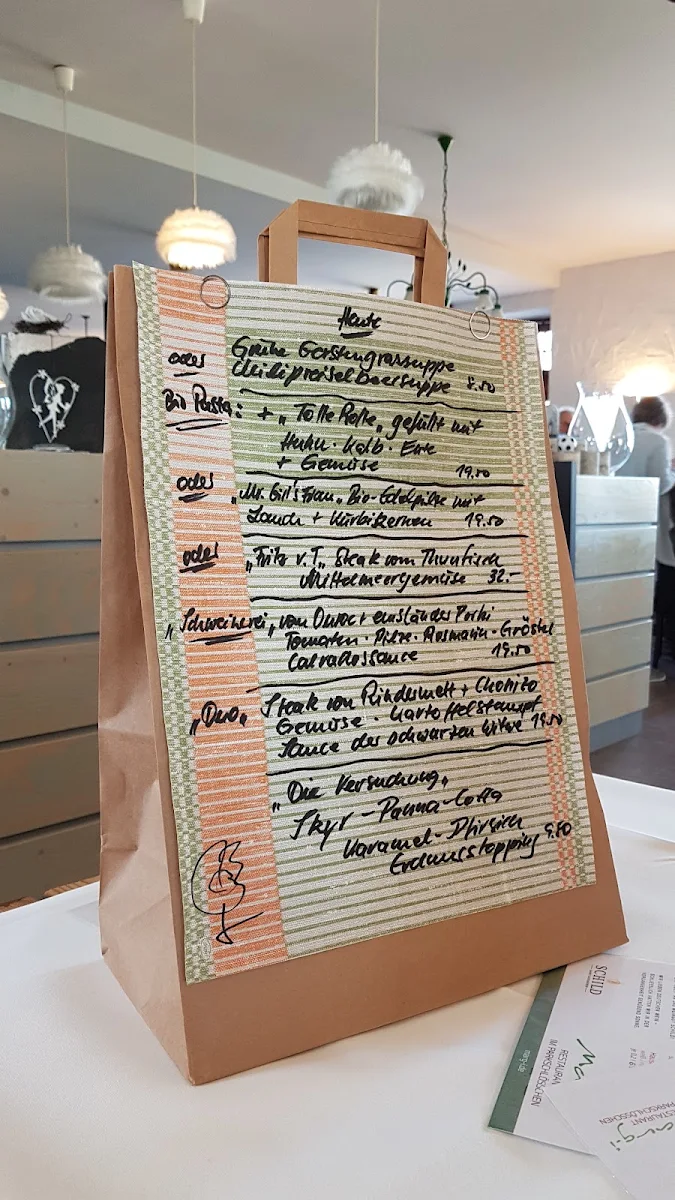 Heute
Grüne Gerstengrassuppe
oder
Chilipreiselbeersuppe 8.50
Bio Pasta: + „Tolle Rolle„ gefüllt mit
Huhn · Kalb · Ente
+ Gemüse 19.50
oder
„Mr. Gil's Frau„ Bio-Edelpilze mit
Lauch + Kürbiskernen 19.50
oder „Fritz v. T„ Steak vom Thunfisch
Mittelmeergemüse 32.-
„Schweinerei„ vom Duroc +
Tomaten · Pilze · Rosmarin - Gröstel
sauce 19.50
„Duo„ Steak von + Chorizo
Gemüse · Kartoffelstampf
Sauce der schwarzen Witwe 19.50
„Die Versuchung„
Skyr - Panna - Cotta
Karamel - Pfirsich
Erdnusstopping 9.50
SCHILD
RESTAURANT
IM PARKSCHLÖSSCHEN